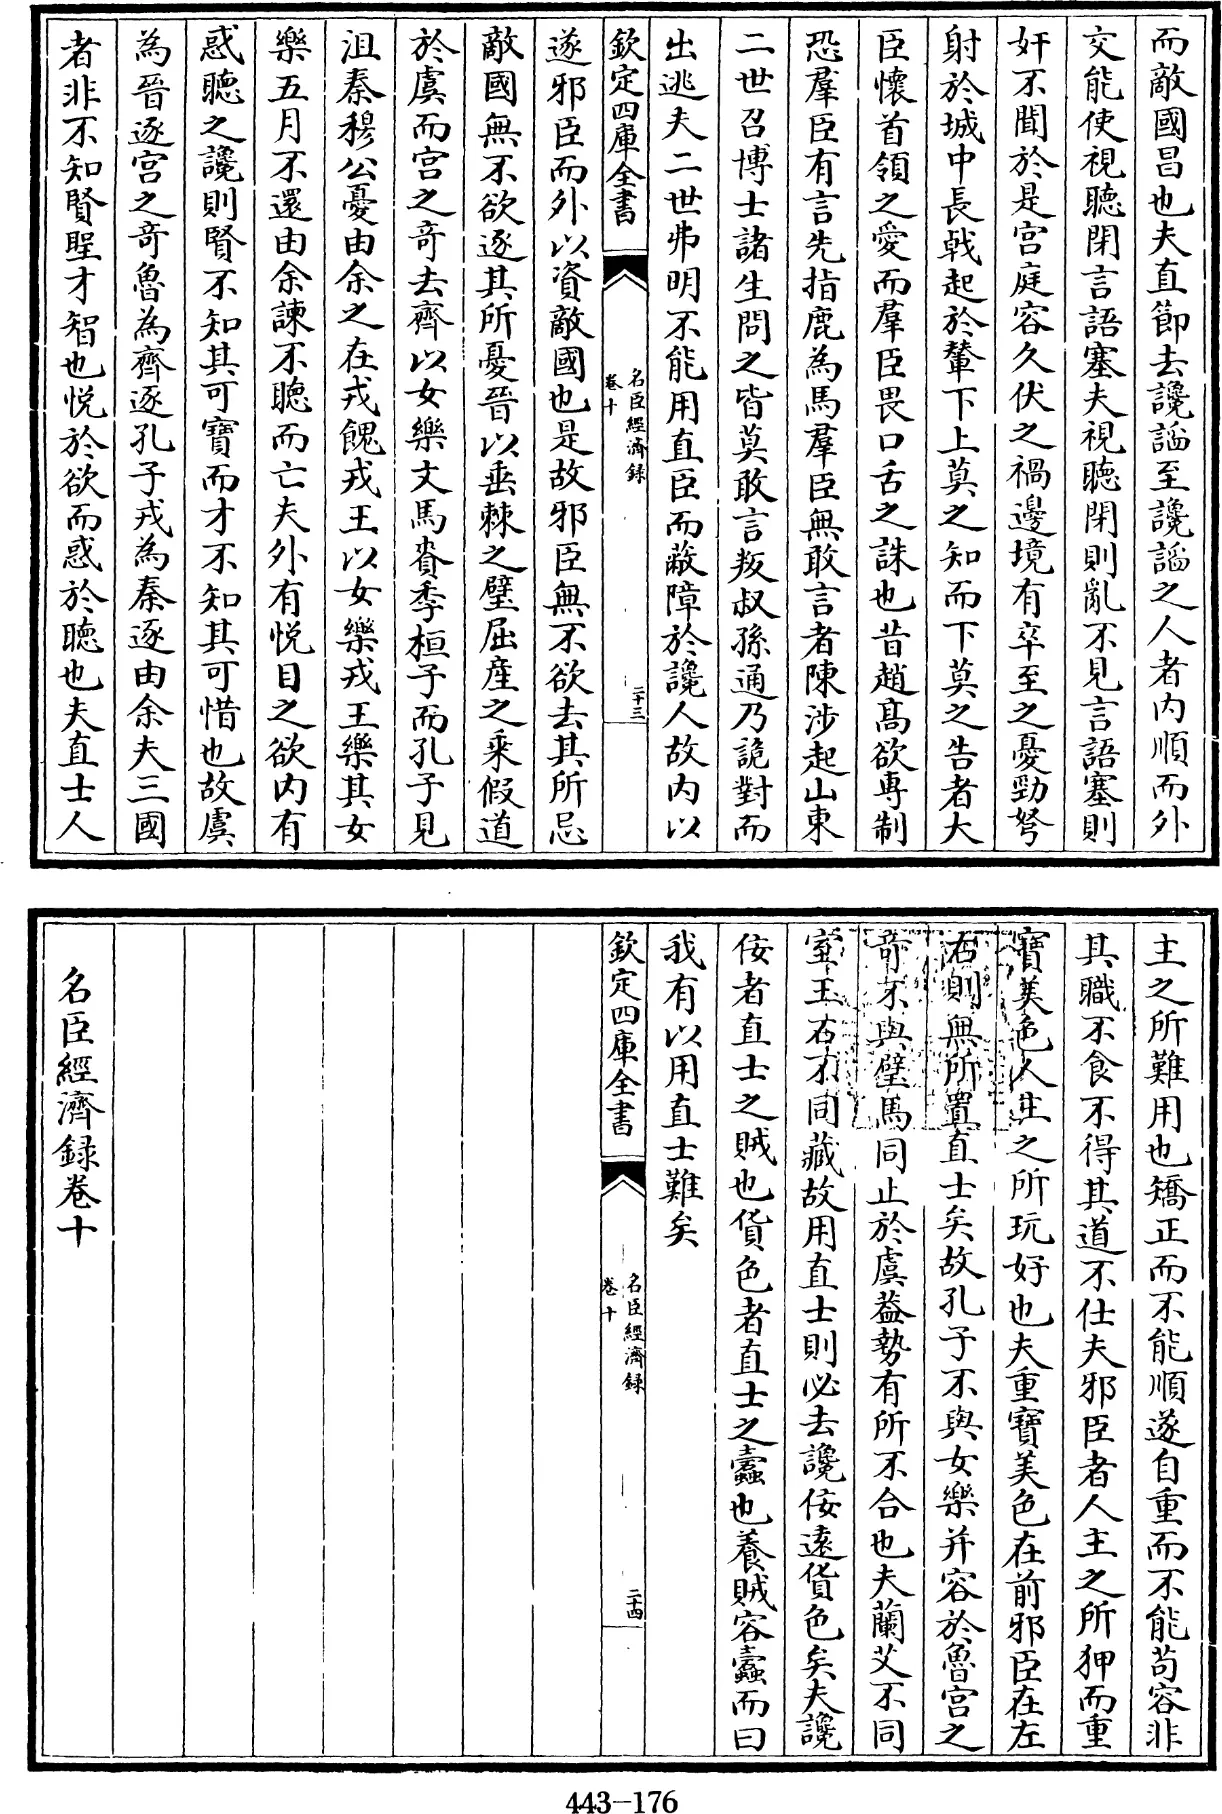 而敵國昌也夫直節去讒謟至讒謟之人者内順而外
交能使視聽閉言語塞夫視聽閉則亂不見言語塞則
奸不聞於是宫庭容久伏之禍邊境有卒至之憂勁弩
射於城中長戟起於輦下上莫之知而下莫之告者大
臣懷首領之愛而羣臣畏口舌之誅也昔趙髙欲専制
恐羣臣有言先指鹿為馬羣臣無敢言者陳涉起山東
二世召博士諸生問之皆莫敢言叛叔孫通乃詭對而
出逃夫二世弗明不能用直臣而蔽障於讒人故内以
欽定四庫全書
名臣經濟録
卷十
二十三
遂邪臣而外以資敵國也是故邪臣無不欲去其所忌
敵國無不欲逐其所憂晉以垂棘之璧屈産之乘假道
於虞而宫之竒去齊以女樂文馬賚季桓子而孔子見
沮秦穆公憂由余之在戎餽戎王以女樂戎王樂其女
樂五月不還由余諫不聽而亡夫外有悦目之欲内有
惑聽之讒則賢不知其可寶而才不知其可惜也故虞
為晉逐宫之竒魯為齊逐孔子戎為秦逐由余夫三國
者非不知賢聖才智也悦於欲而惑於聽也夫直士人
主之所難用也矯正而不能順遂自重而不能茍容非
其職不食不得其道不仕夫邪臣者人主之所狎而重
寶美色人主之所玩好也夫重寶美色在前邪臣在左
右則無所置直士矣故孔子不與女樂并容於魯宫之
竒不與璧馬同止於虞葢勢有所不合也夫蘭艾不同
室玉石不同藏故用直士則必去讒佞遠貨色矣夫讒
佞者直士之賊也貨色者直士之蠧也養賊容蠧而曰
我有以用直士難矣
欽定四庫全書
名臣經濟録
卷十
二十四
名臣經濟録卷十
443-176